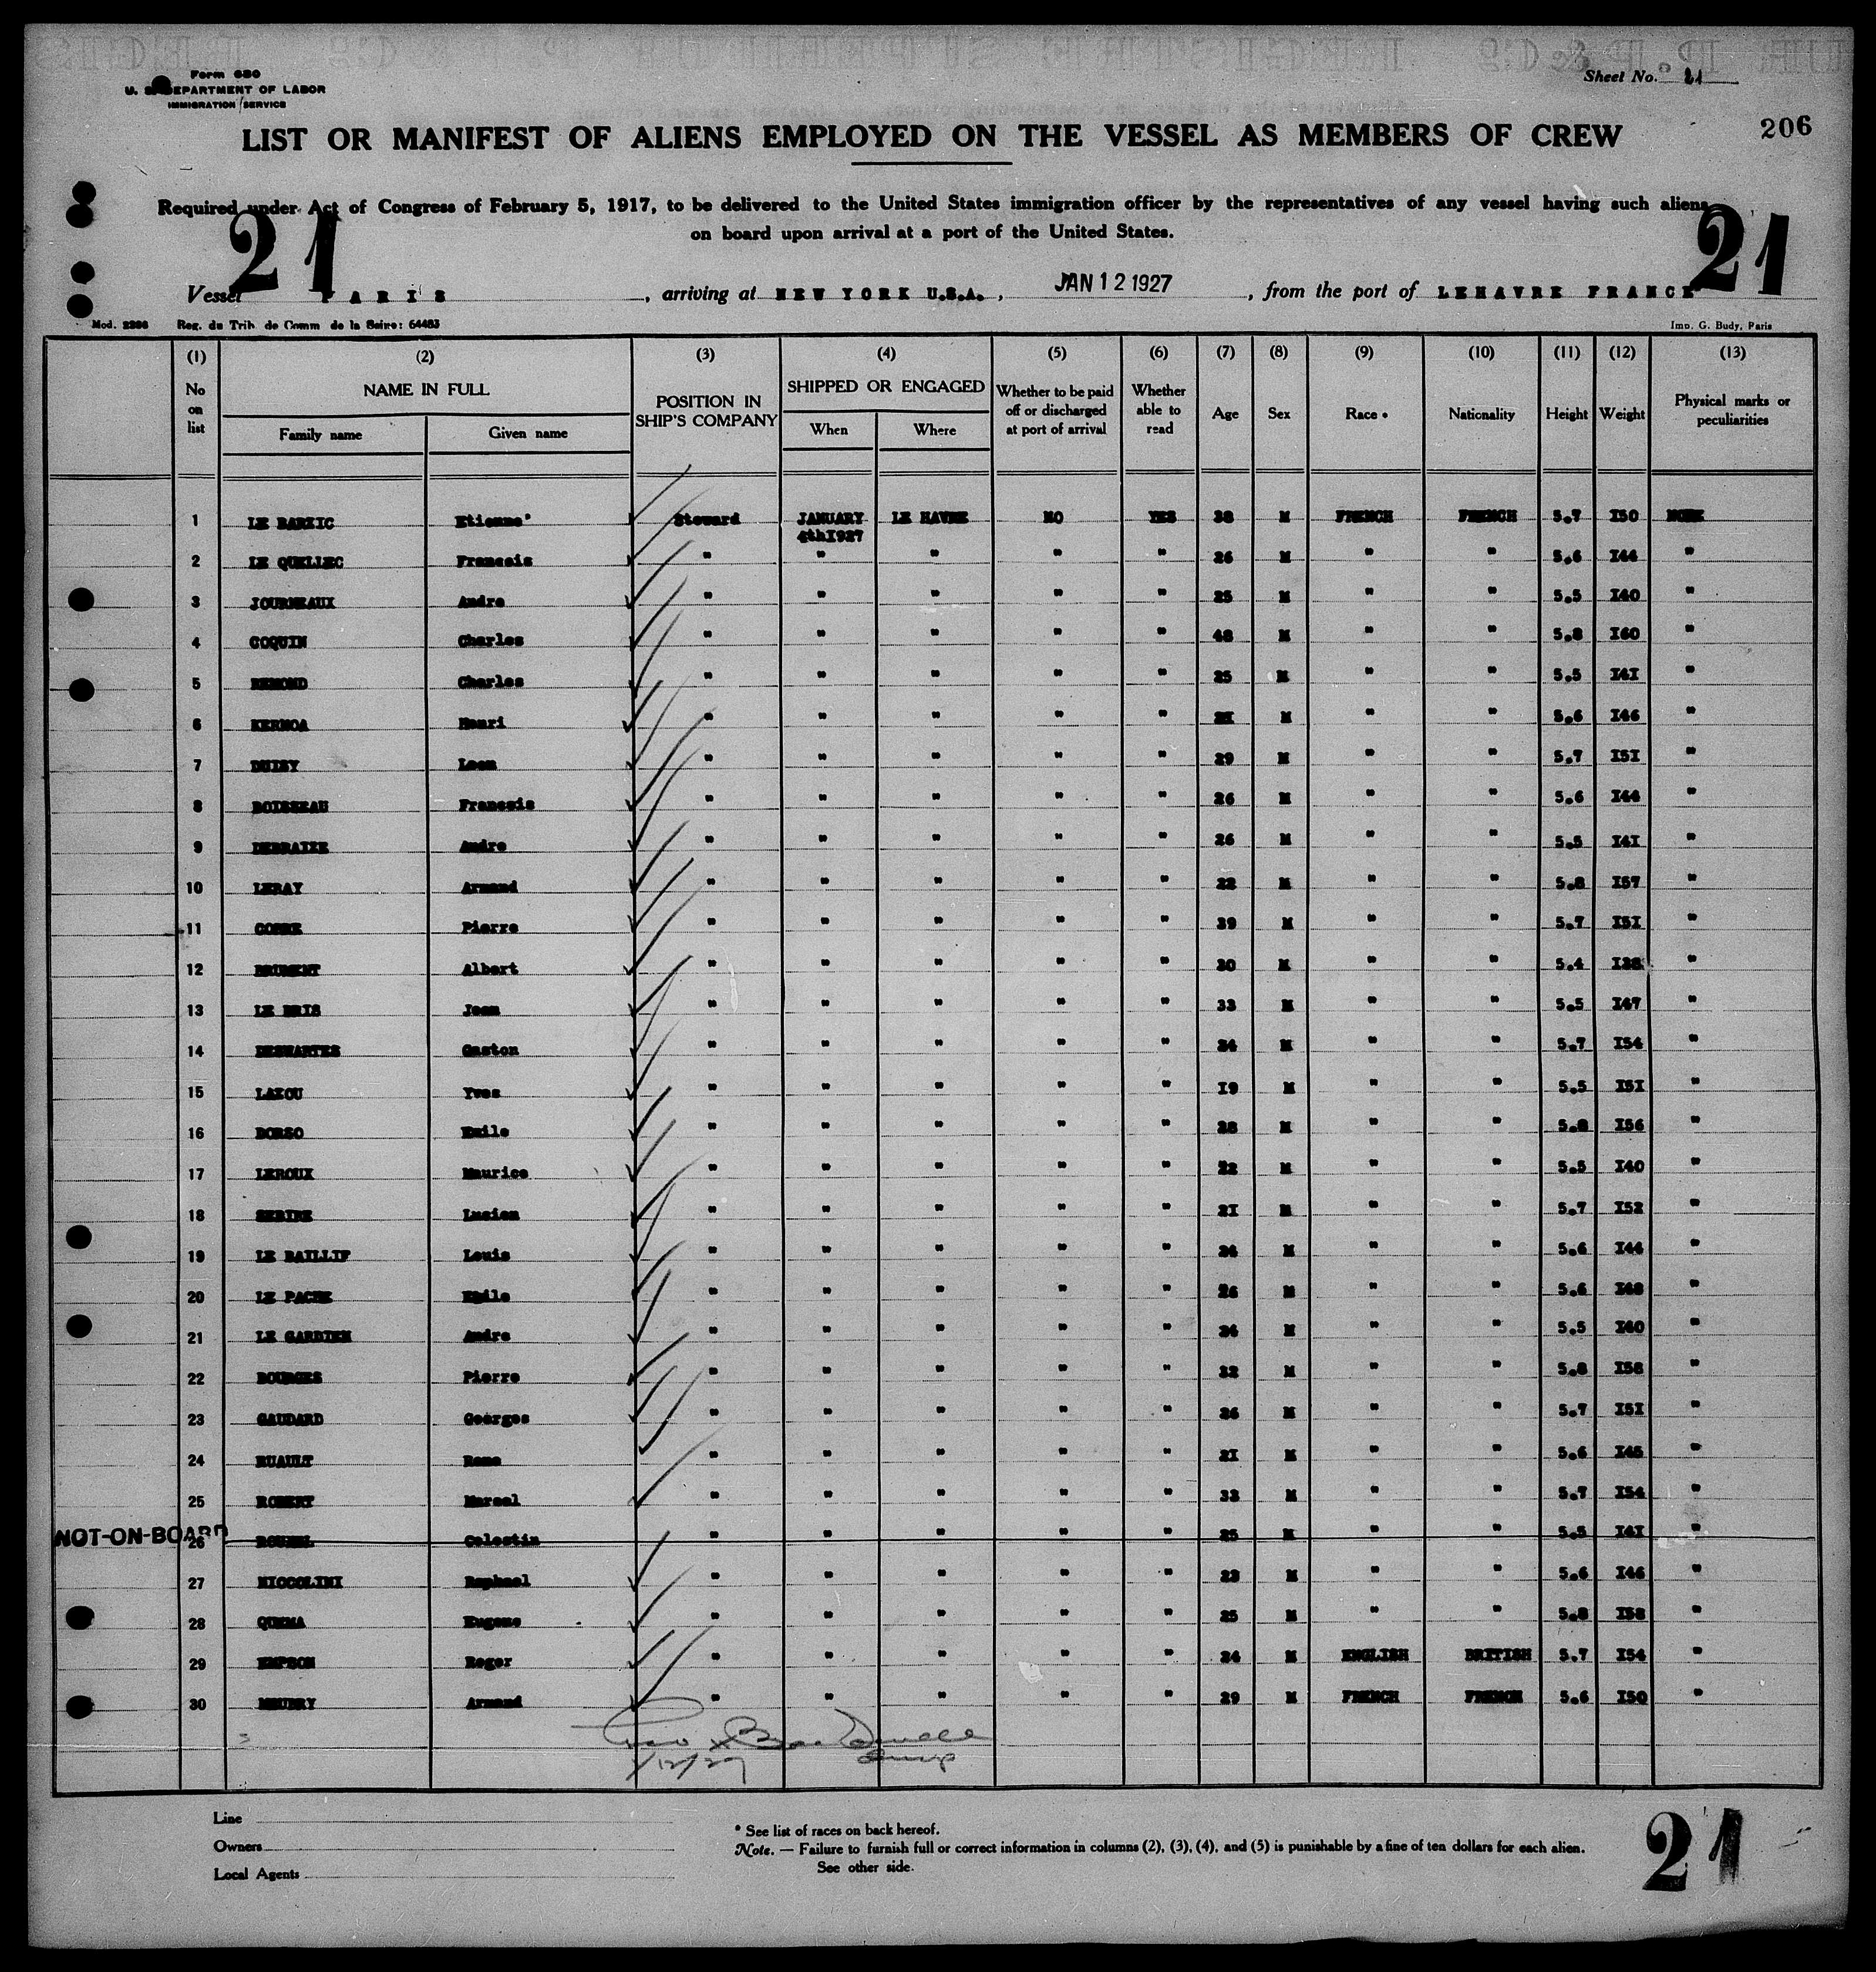 Form 680
U. S. DEPARTMENT OF LABOR
IMMIGRATION SERVICE
Sheet No. 21
206
LIST OR MANIFEST OF ALIENS EMPLOYED ON THE VESSEL AS MEMBERS OF CREW
Required under Act of Congress of February 5, 1917, to be delivered to the United States immigration officer by the representatives of any vessel having such aliens
on board upon arrival at a port of the United States.
21 21
Vessel PARIS, arriving at NEW YORK U.S.A., JAN 12 1927, from the port of LEHAVRE FRANCE
Mod. 2266 Reg. du Trib. de Comm de la Seine: 64483 Imp. G. Budy, Paris
(1) (2) (3) (4) (5) (6) (7) (8) (9) (10) (11) (12) (13)
No on list NAME IN FULL Family name Given name POSITION IN SHIP'S COMPANY SHIPPED OR ENGAGED When Where Whether to be paid off or discharged at port of arrival Whether able to read Age Sex Race * Nationality Height Weight Physical marks or peculiarities
1 LE BARZIC Etienne Steward JANUARY 4th1927 LE HAVRE NO YES 38 M FRENCH FRENCH 5.7 I50 NONE
2 LE QUELLEC Francois " " " " " 26 M " " 5.6 I44 "
3 JOURNEAUX Andre " " " " " 25 M " " 5.5 I40 "
4 COQUIN Charles " " " " " 48 M " " 5.8 I60 "
5 REMOND Charles " " " " " 25 M " " 5.5 I4I "
6 KERNOA Henri " " " " " 2I M " " 5.6 I46 "
7 Leon " " " " " 29 M " " 5.7 I5I "
8 BOISSEAU Francois " " " " " 26 M " " 5.6 I44 "
9 DEBRAIZE Andre " " " " " 26 M " " 5.5 I4I "
10 LERAY Armand " " " " " 22 M " " 5.8 I57 "
11 Pierre " " " " " 39 M " " 5.7 I5I "
12 BRUMENT Albert " " " " " 30 M " " 5.4 I38 "
13 LE BRIS Jean " " " " " 33 M " " 5.5 I47 "
14 DESWARTES Gaston " " " " " 34 M " " 5.7 I54 "
15 LAZOU Yves " " " " " I9 M " " 5.5 I5I "
16 BORSO Emile " " " " " 28 M " " 5.8 I56 "
17 LEROUX Maurice " " " " " 22 M " " 5.5 I40 "
18 SEBIRE Lucien " " " " " 2I M " " 5.7 I52 "
19 LE BAILLIF Louis " " " " " 24 M " " 5.6 I44 "
20 LE PACHE Emile " " " " " 26 M " " 5.6 I48 "
21 LE GARDIEN Andre " " " " " 24 M " " 5.5 I40 "
22 BOURGES Pierre " " " " " 32 M " " 5.8 I58 "
23 GAUDARD Georges " " " " " 26 M " " 5.7 I5I "
24 RUAULT Rene " " " " " 2I M " " 5.6 I45 "
25 ROBERT Marcel " " " " " 33 M " " 5.7 I54 "
NOT-ON-BOARD 26 Celestin " " " " " 25 M " " 5.5 I4I "
27 NICCOLINI Raphael " " " " " 23 M " " 5.6 I46 "
28 QUEMA Eugene " " " " " 25 M " " 5.8 I58 "
29 EMPSON Roger " " " " " 24 M ENGLISH BRITISH 5.7 I54 "
30 MAUBRY Armand " " " " " 29 M FRENCH FRENCH 5.6 I50 "
1/12/27
Line
Owners
Local Agents
* See list of races on back hereof.
Note. — Failure to furnish full or correct information in columns (2), (3), (4), and (5) is punishable by a fine of ten dollars for each alien.
See other side.
21